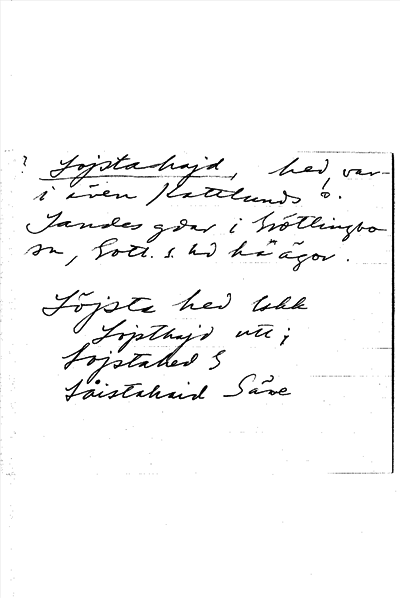 ? Lojstahajd, hed, var-
i även Kattlunds o.
Sandes gdar i Gröttlingbo
sn, Gotl. s. hd ha ägor.
Löjsta hed lskk
Lojsthajd utt;
Lojstahed S
Loistahaid Säve